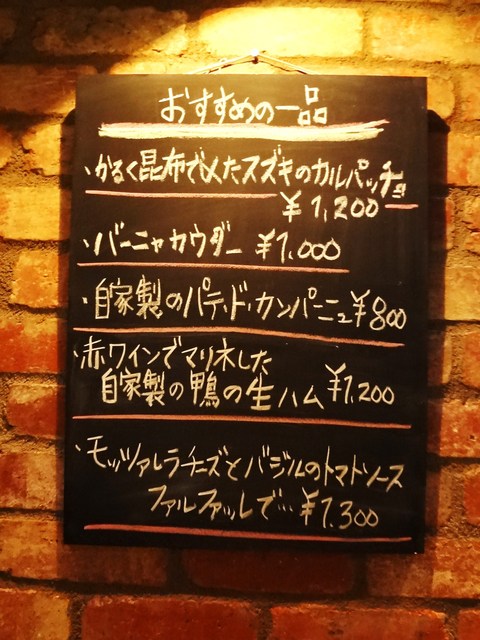 おすすめの一品
・かるく昆布で〆たスズキのカルパッチョ
¥1,200
・バーニャカウダー ¥1.000
・自家製のパテ・ド・カンパーニュ¥800
・赤ワインでマリネした
自家製の鴨の生ハム ¥1.200
・モッツァレラチーズとバジルのトマトソース
ファルファッレで…¥1.300